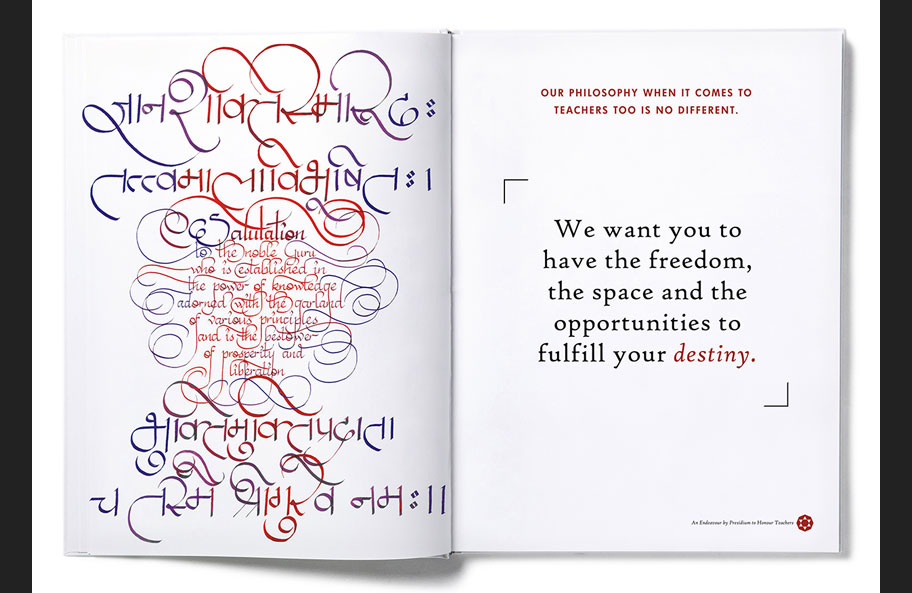 ज्ञानशक्तिसमारूढः
तत्त्वमालाविभूषितः।
Salutation
to the noble Guru
who is established in
the power of knowledge
adorned with the garland
of various principles
and is the bestower
of prosperity and
liberation
भुक्तिमुक्तिप्रदाता
च तस्मै श्रीगुरवे नमः॥
OUR PHILOSOPHY WHEN IT COMES TO
TEACHERS TOO IS NO DIFFERENT.
We want you to
have the freedom,
the space and the
opportunities to
fulfill your destiny.
An Endeavour by Presidium to Honour Teachers